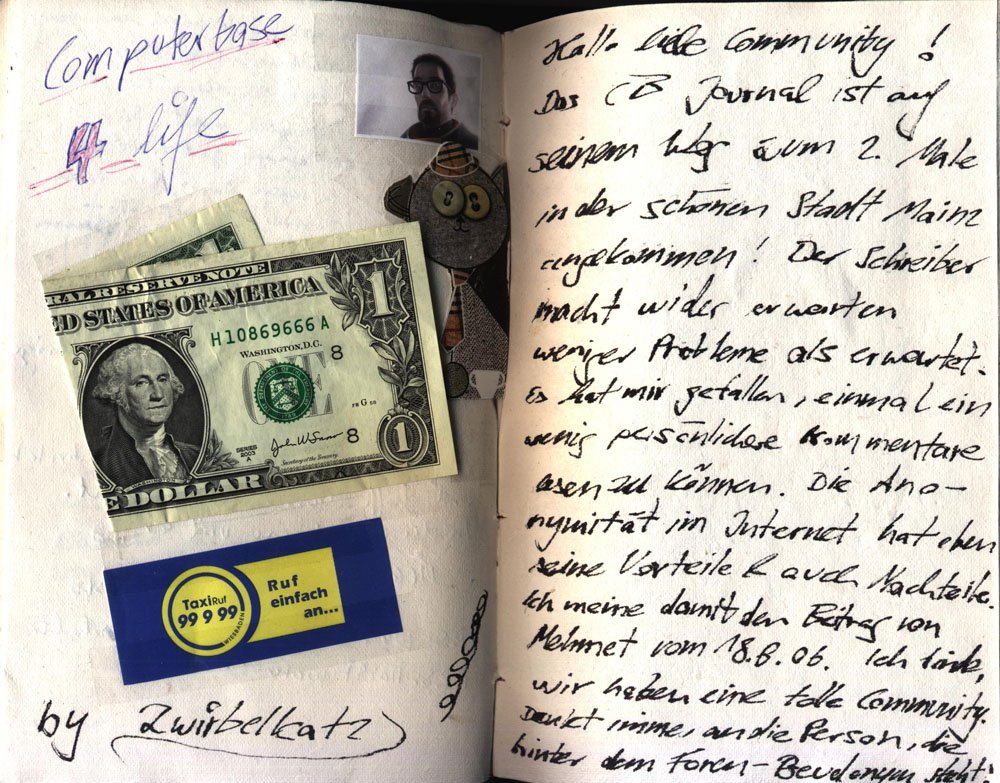 Computerbase
4 life
RAL RESERVE NOTE
ED STATES OF AMERICA
1
H 10869666 A
WASHINGTON, D.C.
8
ONE
FW G 50
SERIES
2003
A
John W Snow
Secretary of the Treasury
8
1
WASHINGTON
E DOLLAR
TaxiRuf
99 9 99
WIESBADEN
Ruf
einfach
an...
by Zwirbelkatz
Hallo liebe Community!
Das CB Journal ist auf
seinem Weg zum 2. Male
in der schönen Stadt Mainz
angekommen! Der Schreiber
macht wider erwarten
weniger Probleme als erwartet.
Es hat mir gefallen, einmal ein
wenig persönlichere Kommentare
lesen zu können. Die Ano-
nymität im Internet hat eben
seine Vorteile & auch Nachteile.
Ich meine damit den Beitrag von
Mehmet vom 18.6.06. Ich finde,
wir haben eine tolle Community.
Denkt immer an die Person, die
hinter dem Foren- steht!